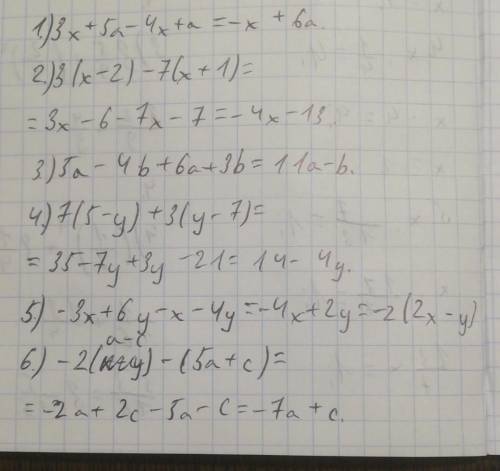 1.) 3x + 5a - 4x + a = -x + 6a.
2.) 3(x - 2) - 7(x + 1) =
= 3x - 6 - 7x - 7 = -4x - 13.
3.) 5a - 4b + 6a + 3b = 11a - b.
4.) 7(5 - y) + 3(y - 7) =
= 35 - 7y + 3y - 21 = 14 - 4y.
5) -3x + 6y - x - 4y = -4x + 2y = -2(2x - y)
a - c
6.) -2( ) - (5a + c) =
= -2a + 2c - 5a - c = -7a + c.